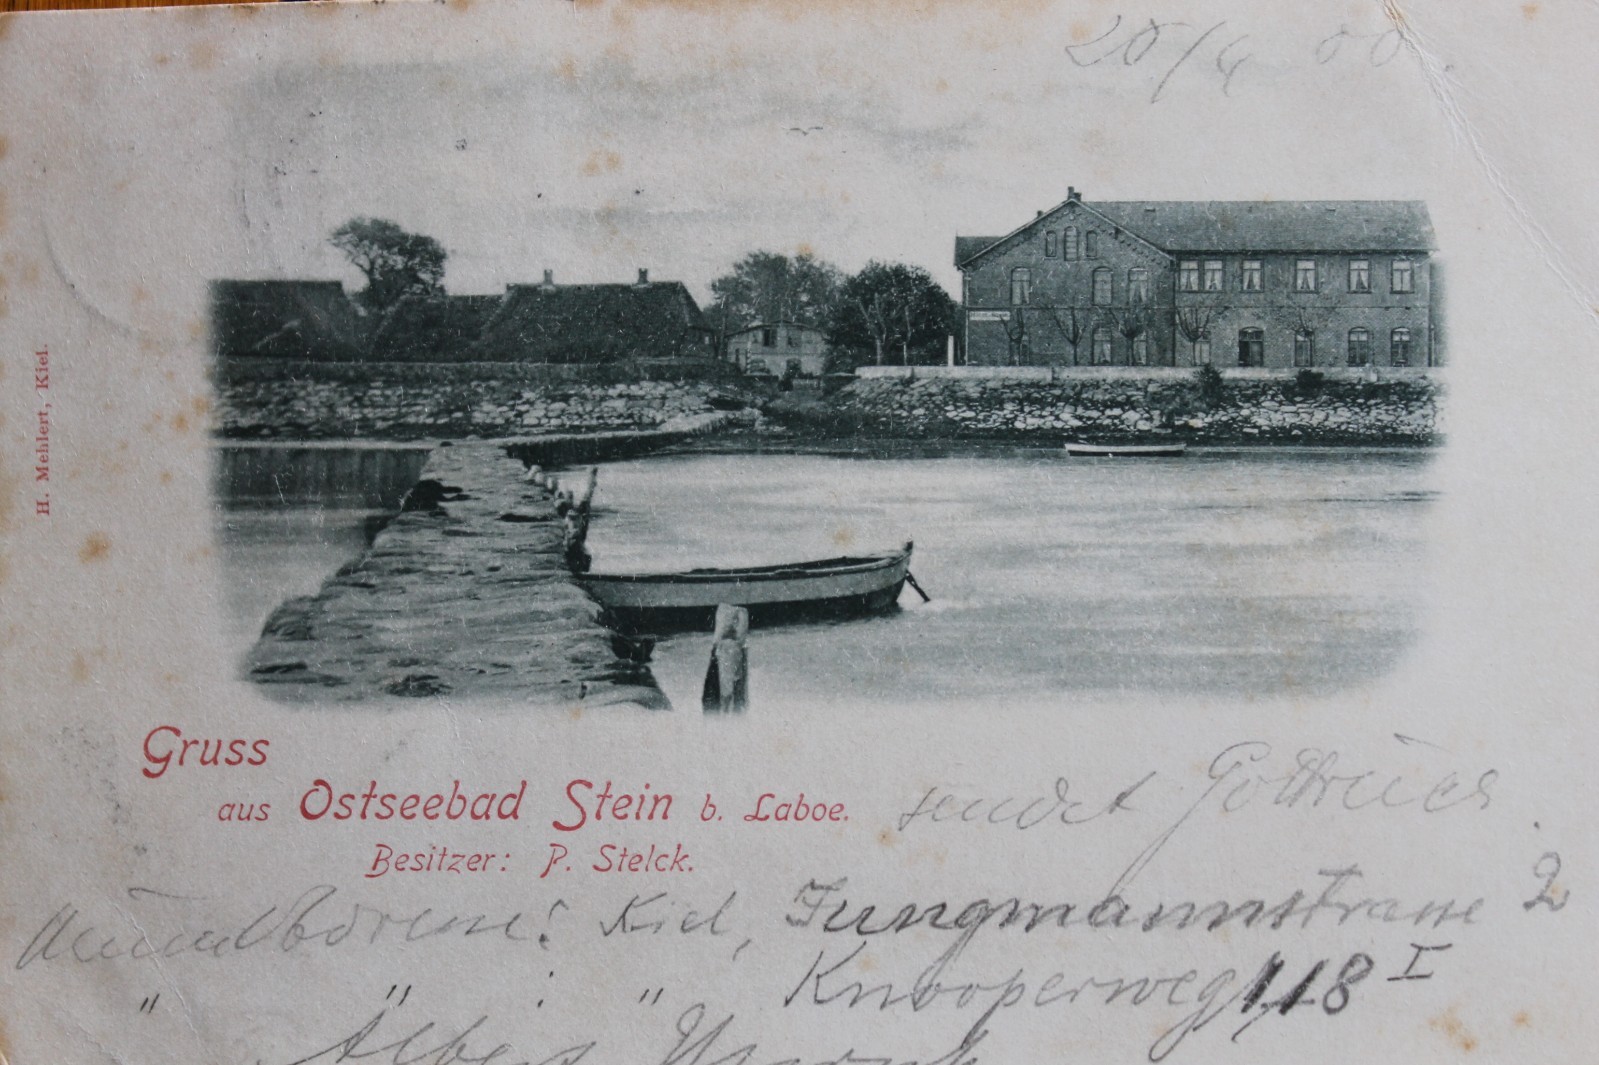 20/4 00.
H. Mehlert, Kiel.
Gruss
aus Ostseebad Stein b. Laboe.
sendet
Besitzer: P. Stelck.
Kiel, Jungmannstrasse 2
" " : " Knooperweg 118 I
Albert